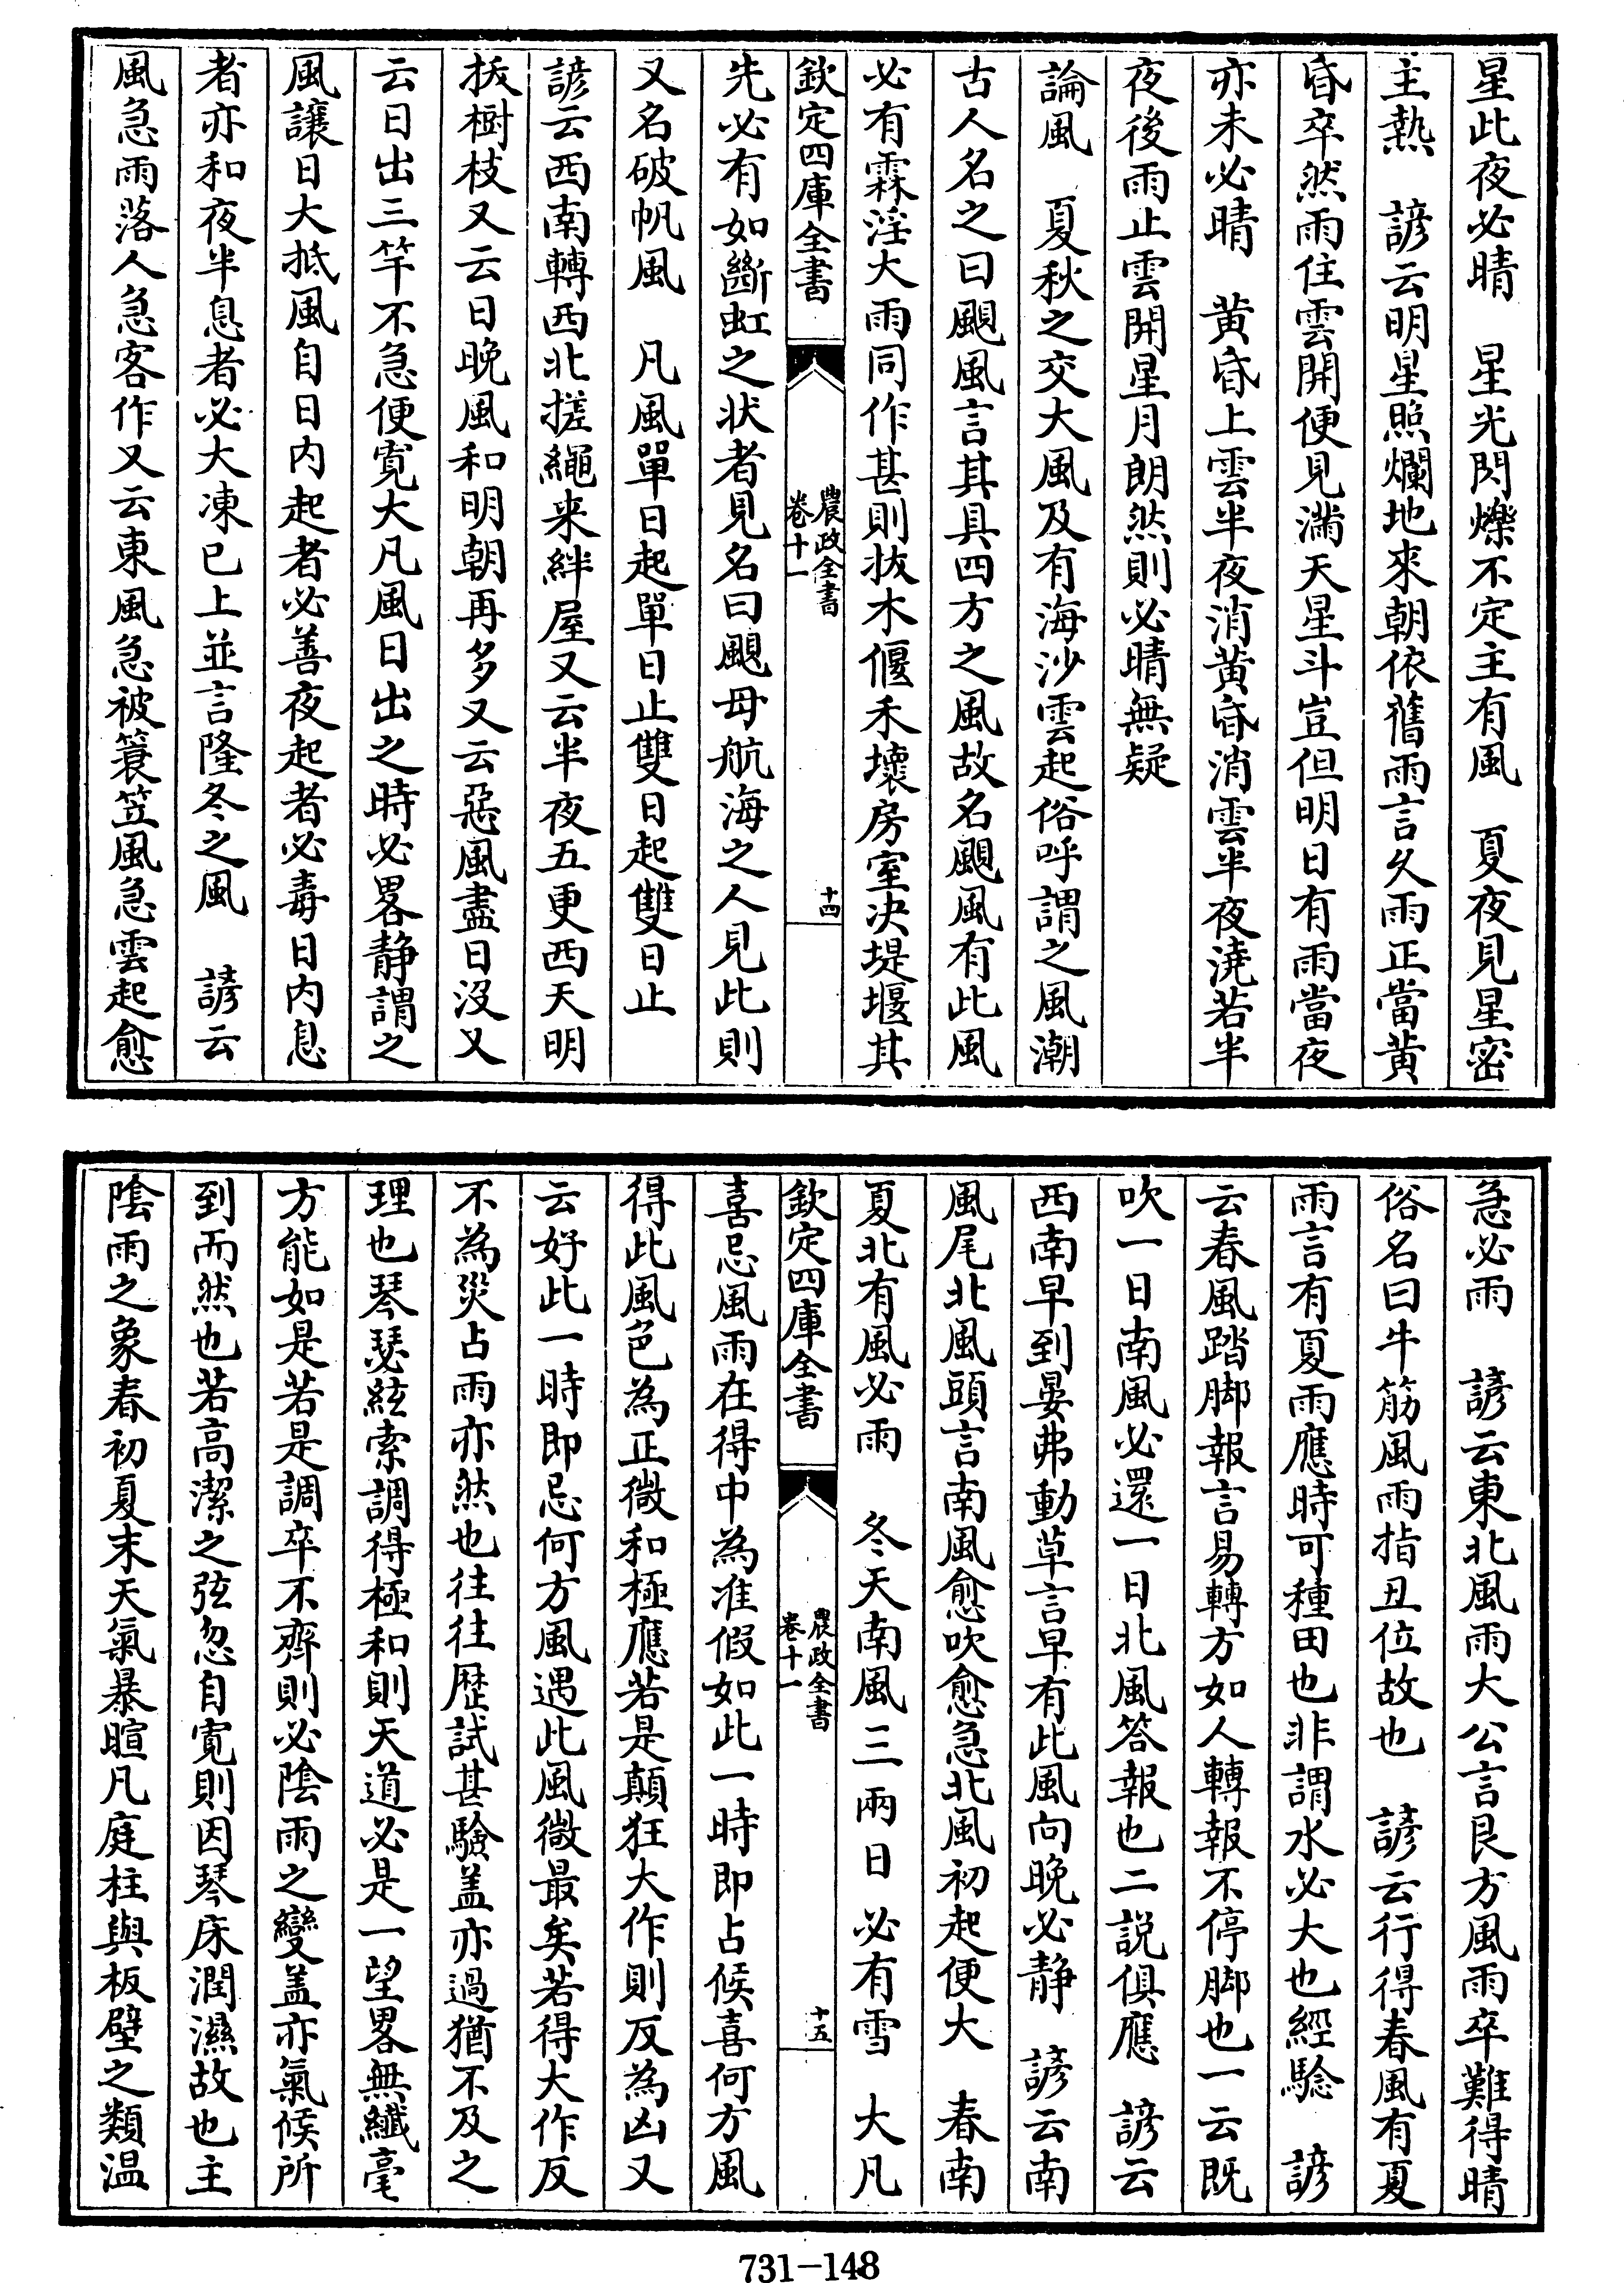 星此夜必晴　星光閃爍不定主有風　夏夜見星密
主熱　諺云明星照爛地來朝依舊雨言久雨正當黄
昏卒然雨住雲開便見滿天星斗豈但明日有雨當夜
亦未必晴　黄昏上雲半夜消黄昏消雲半夜澆若半
夜後雨止雲開星月朗然則必晴無疑
論風　夏秋之交大風及有海沙雲起俗呼謂之風潮
古人名之曰颶風言其具四方之風故名颶風有此風
必有霖淫大雨同作甚則拔木偃禾壞房室决堤堰其
欽定四庫全書
農政全書
卷十一
十四
先必有如斷虹之状者見名曰颶母航海之人見此則
又名破帆風　凡風單日起單日止雙日起雙日止
諺云西南轉西北搓繩来絆屋又云半夜五更西天明
拔樹枝又云日晚風和明朝再多又云惡風盡日沒又
云日出三竿不急便寛大凡風日出之時必畧静謂之
風讓日大抵風自日内起者必善夜起者必毒日内息
者亦和夜半息者必大凍已上並言隆冬之風　諺云
風急雨落人急客作又云東風急被簑笠風急雲起愈
急必雨　諺云東北風雨大公言艮方風雨卒難得晴
俗名曰牛筋風雨指丑位故也　諺云行得春風有夏
雨言有夏雨應時可種田也非謂水必大也經驗　諺
云春風踏脚報言易轉方如人轉報不停脚也一云既
吹一日南風必還一日北風答報也二説俱應　諺云
西南早到晏弗動草言早有此風向晚必静　諺云南
風尾北風頭言南風愈吹愈急北風初起便大　春南
夏北有風必雨　冬天南風三兩日必有雪　大凡
欽定四庫全書
農政全書
卷十一
十五
喜忌風雨在得中為准假如此一時即占候喜何方風
得此風色為正微和極應若是顛狂大作則反為凶又
云好此一時即忌何方風遇此風微最矣若得大作反
不為災占雨亦然也往往歴試甚驗盖亦過猶不及之
理也琴瑟絃索調得極和則天道必是一望畧無纎毫
方能如是若是調卒不齊則必隂雨之變盖亦氣候所
到而然也若高潔之弦忽自寛則因琴床潤濕故也主
隂雨之象春初夏末天氣暴暄凡庭柱與板壁之類温
731-148